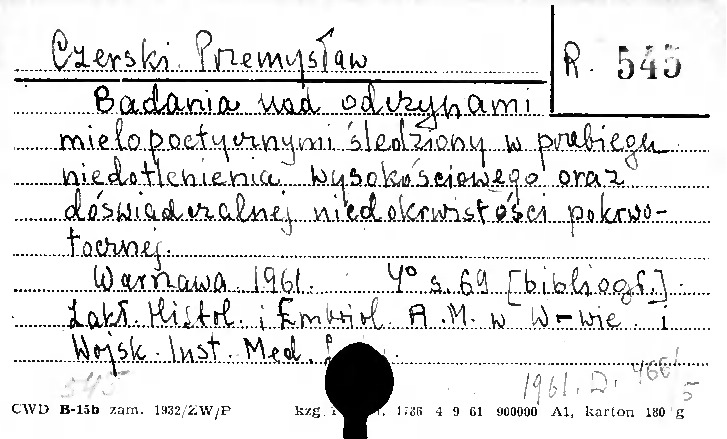 Czerski Przemysław
R. 545
Badania nad odczynami
mielopoetycznymi śledziony w przebiegu
niedotlenienia wysokościowego oraz
doświadczalnej niedokrwistości pokrwo-
tocznej.
Warszawa 1961. 4° s. 69 [bibliogr.]
Zakł. Histol. i Embriol. A.M. w W-wie i
Wojsk. Inst. Med.
545
1961. D. 466/5
CWD B-15b zam. 1932/ZW/P kzg. 1786 4 9 61 900000 A1, karton 180 g